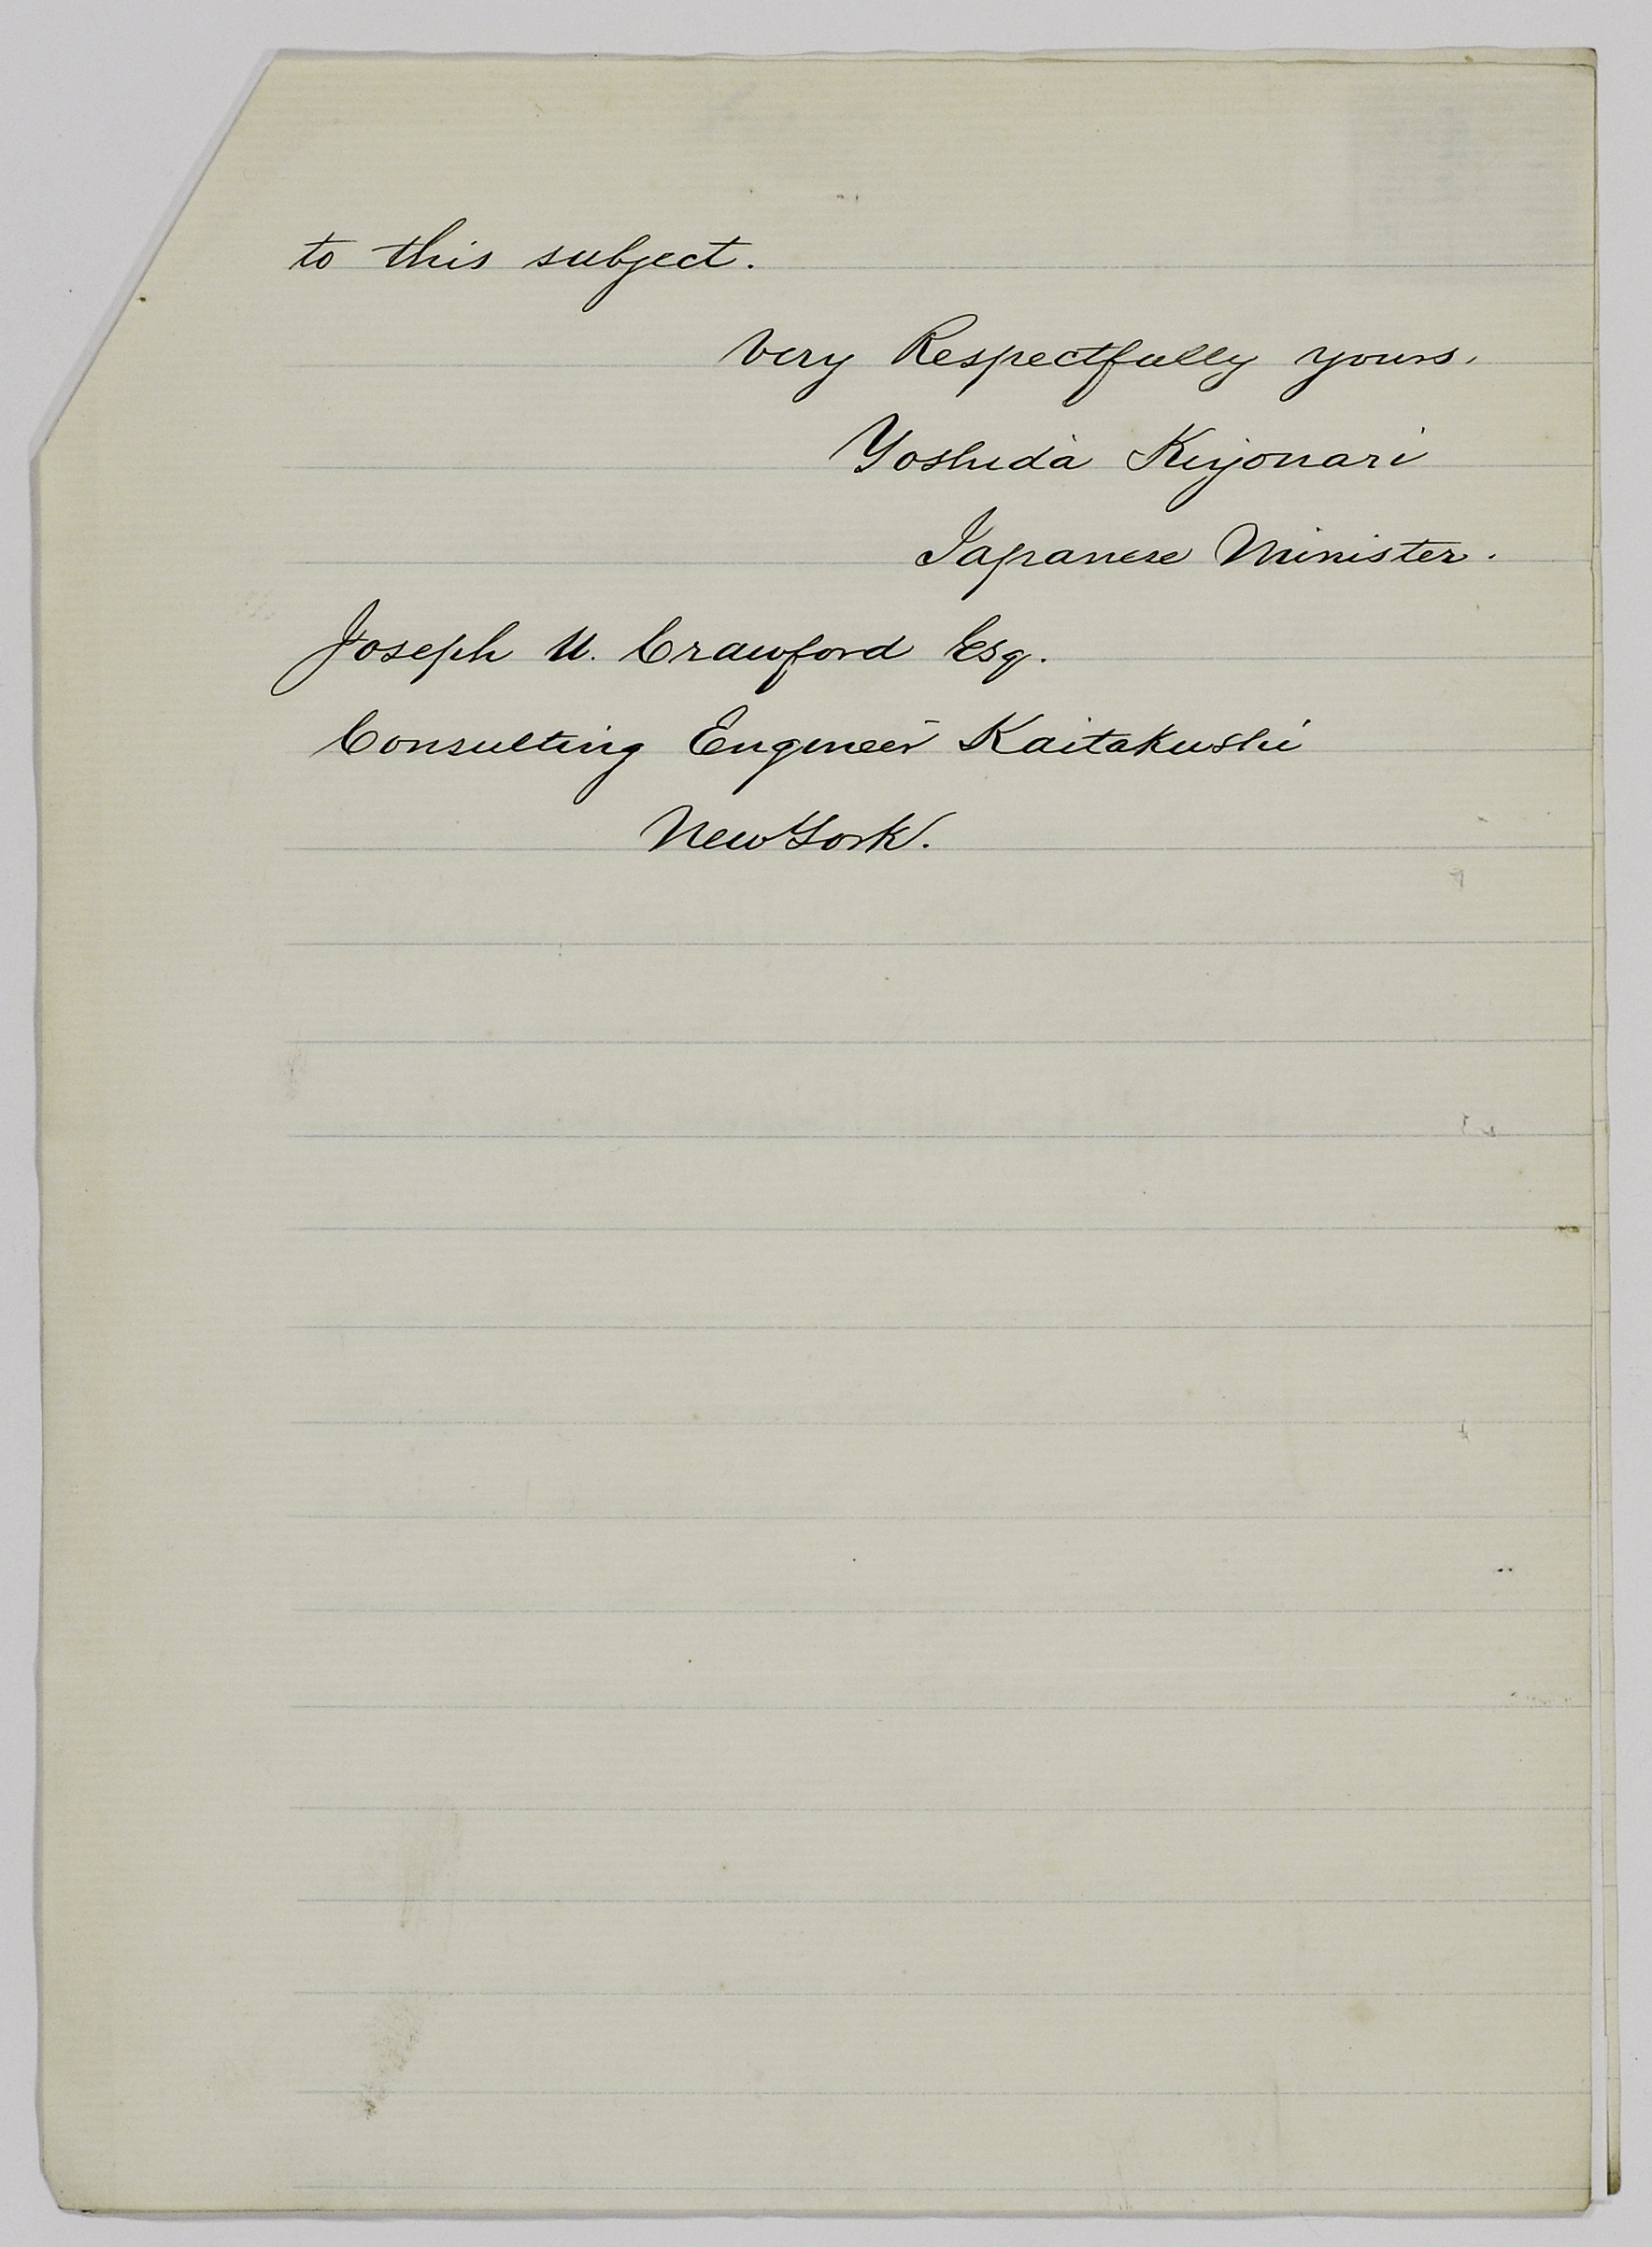 to this subject.
Very Respectfully yours,
Yoshida Kiyonari
Japanese Minister.
Joseph U. Crawford Esq.
Consulting Engineer Kaitakushi
New York.